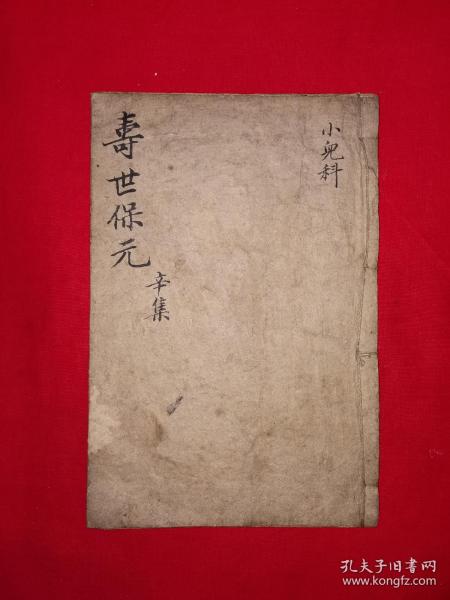 小兒科
壽世保元
辛集
孔夫子旧书网
www.kongfz.com